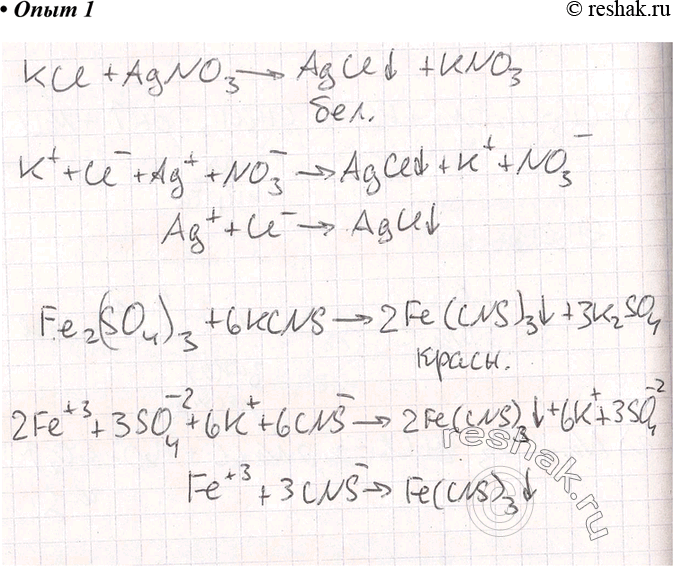 • Опыт 1
© reshak.ru
KCl + AgNO₃ → AgCl↓ + KNO₃
бел.
K⁺ + Cl⁻ + Ag⁺ + NO₃⁻ → AgCl↓ + K⁺ + NO₃⁻
Ag⁺ + Cl⁻ → AgCl↓
Fe₂(SO₄)₃ + 6KCNS → 2Fe(CNS)₃↓ + 3K₂SO₄
красн.
2Fe⁺³ + 3SO₄⁻² + 6K⁺ + 6CNS⁻ → 2Fe(CNS)₃↓ + 6K⁺ + 3SO₄⁻²
Fe⁺³ + 3CNS⁻ → Fe(CNS)₃↓
reshak.ru